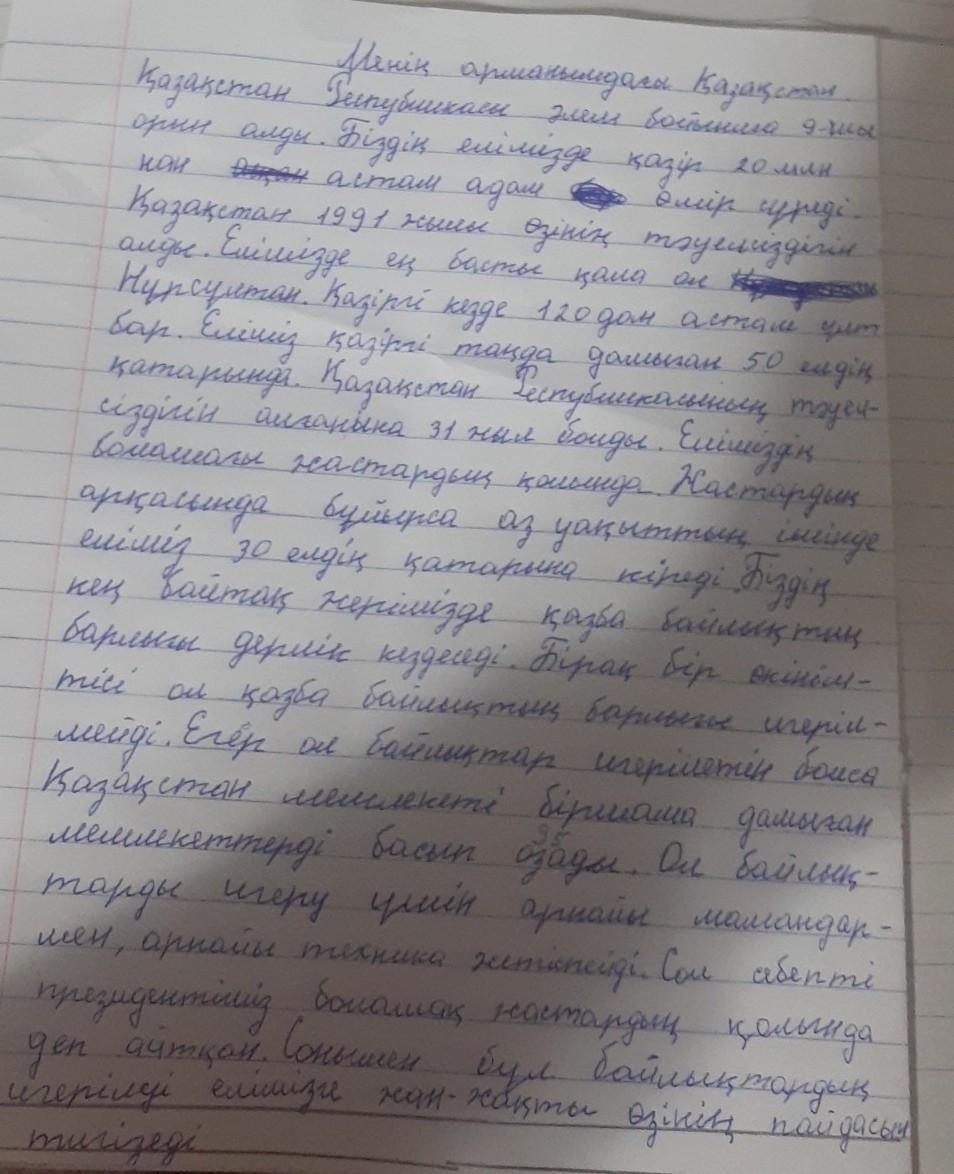 Менің арманымдағы Қазақстан.
Қазақстан Республикасы әлем бойынша 9-шы
орын алды. Біздің елімізде қазір 20 млн
нан астам адам өмір сүреді.
Қазақстан 1991 жылы өзінің тәуелсіздігін
алды. Елімізде ең басты қала ол
Нұрсұлтан. Қазіргі кезде 120 дан астам ұлт
бар. Еліміз қазіргі таңда дамыған 50 елдің
қатарында. Қазақстан Республикасының тәуел-
сіздігін алғанына 31 жыл болды. Еліміздің
болашағы жастардың қолында. Жастардың
арқасында бұйырса аз уақыттың ішінде
еліміз 30 елдің қатарына кіреді. Біздің
кең байтақ жерімізде қазба байлықтың
барлығы дерлік кездеседі. Бірақ бір өкініш-
тісі ол қазба байлықтың барлығы игеріл-
мейді. Егер ол байлықтар игерілетін болса
Қазақстан мемлекеті біршама дамыған
мемлекеттерді басып озады. Ол байлық-
тарды игеру үшін арнайы мамандар-
мен, арнайы техника жетіспейді. Сол себепті
президентіміз болашақ жастардың қолында
деп айтқан. Сонымен бұл байлықтардың
игерілуі елімізге жан-жақты өзінің пайдасын
тигізеді